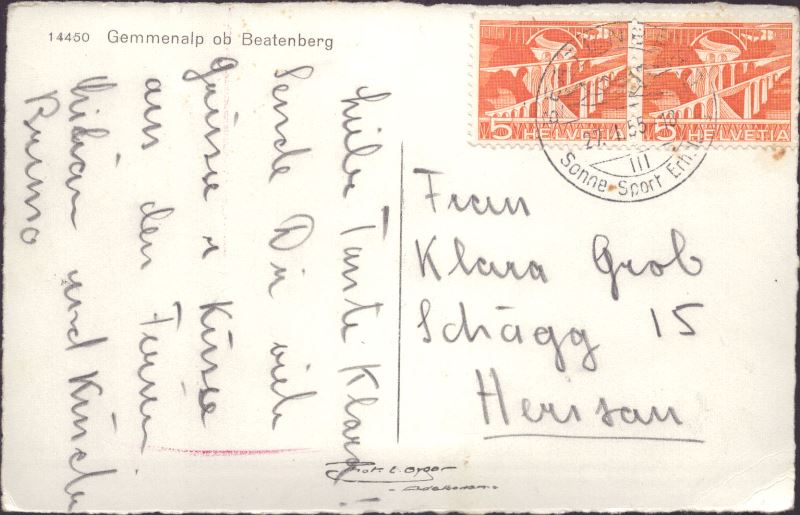 14450 Gemmenalp ob Beatenberg
5 HELVETIA 5 HELVETIA
27. 1. 55. 18
III
Sonne Sport
Liebe Tante Klara!
Sende Dir viele
Grüsse u Küsse
aus den Ferien
und Küsse
Bruno
Frau
Klara Grob
Schägg 15
Herisau